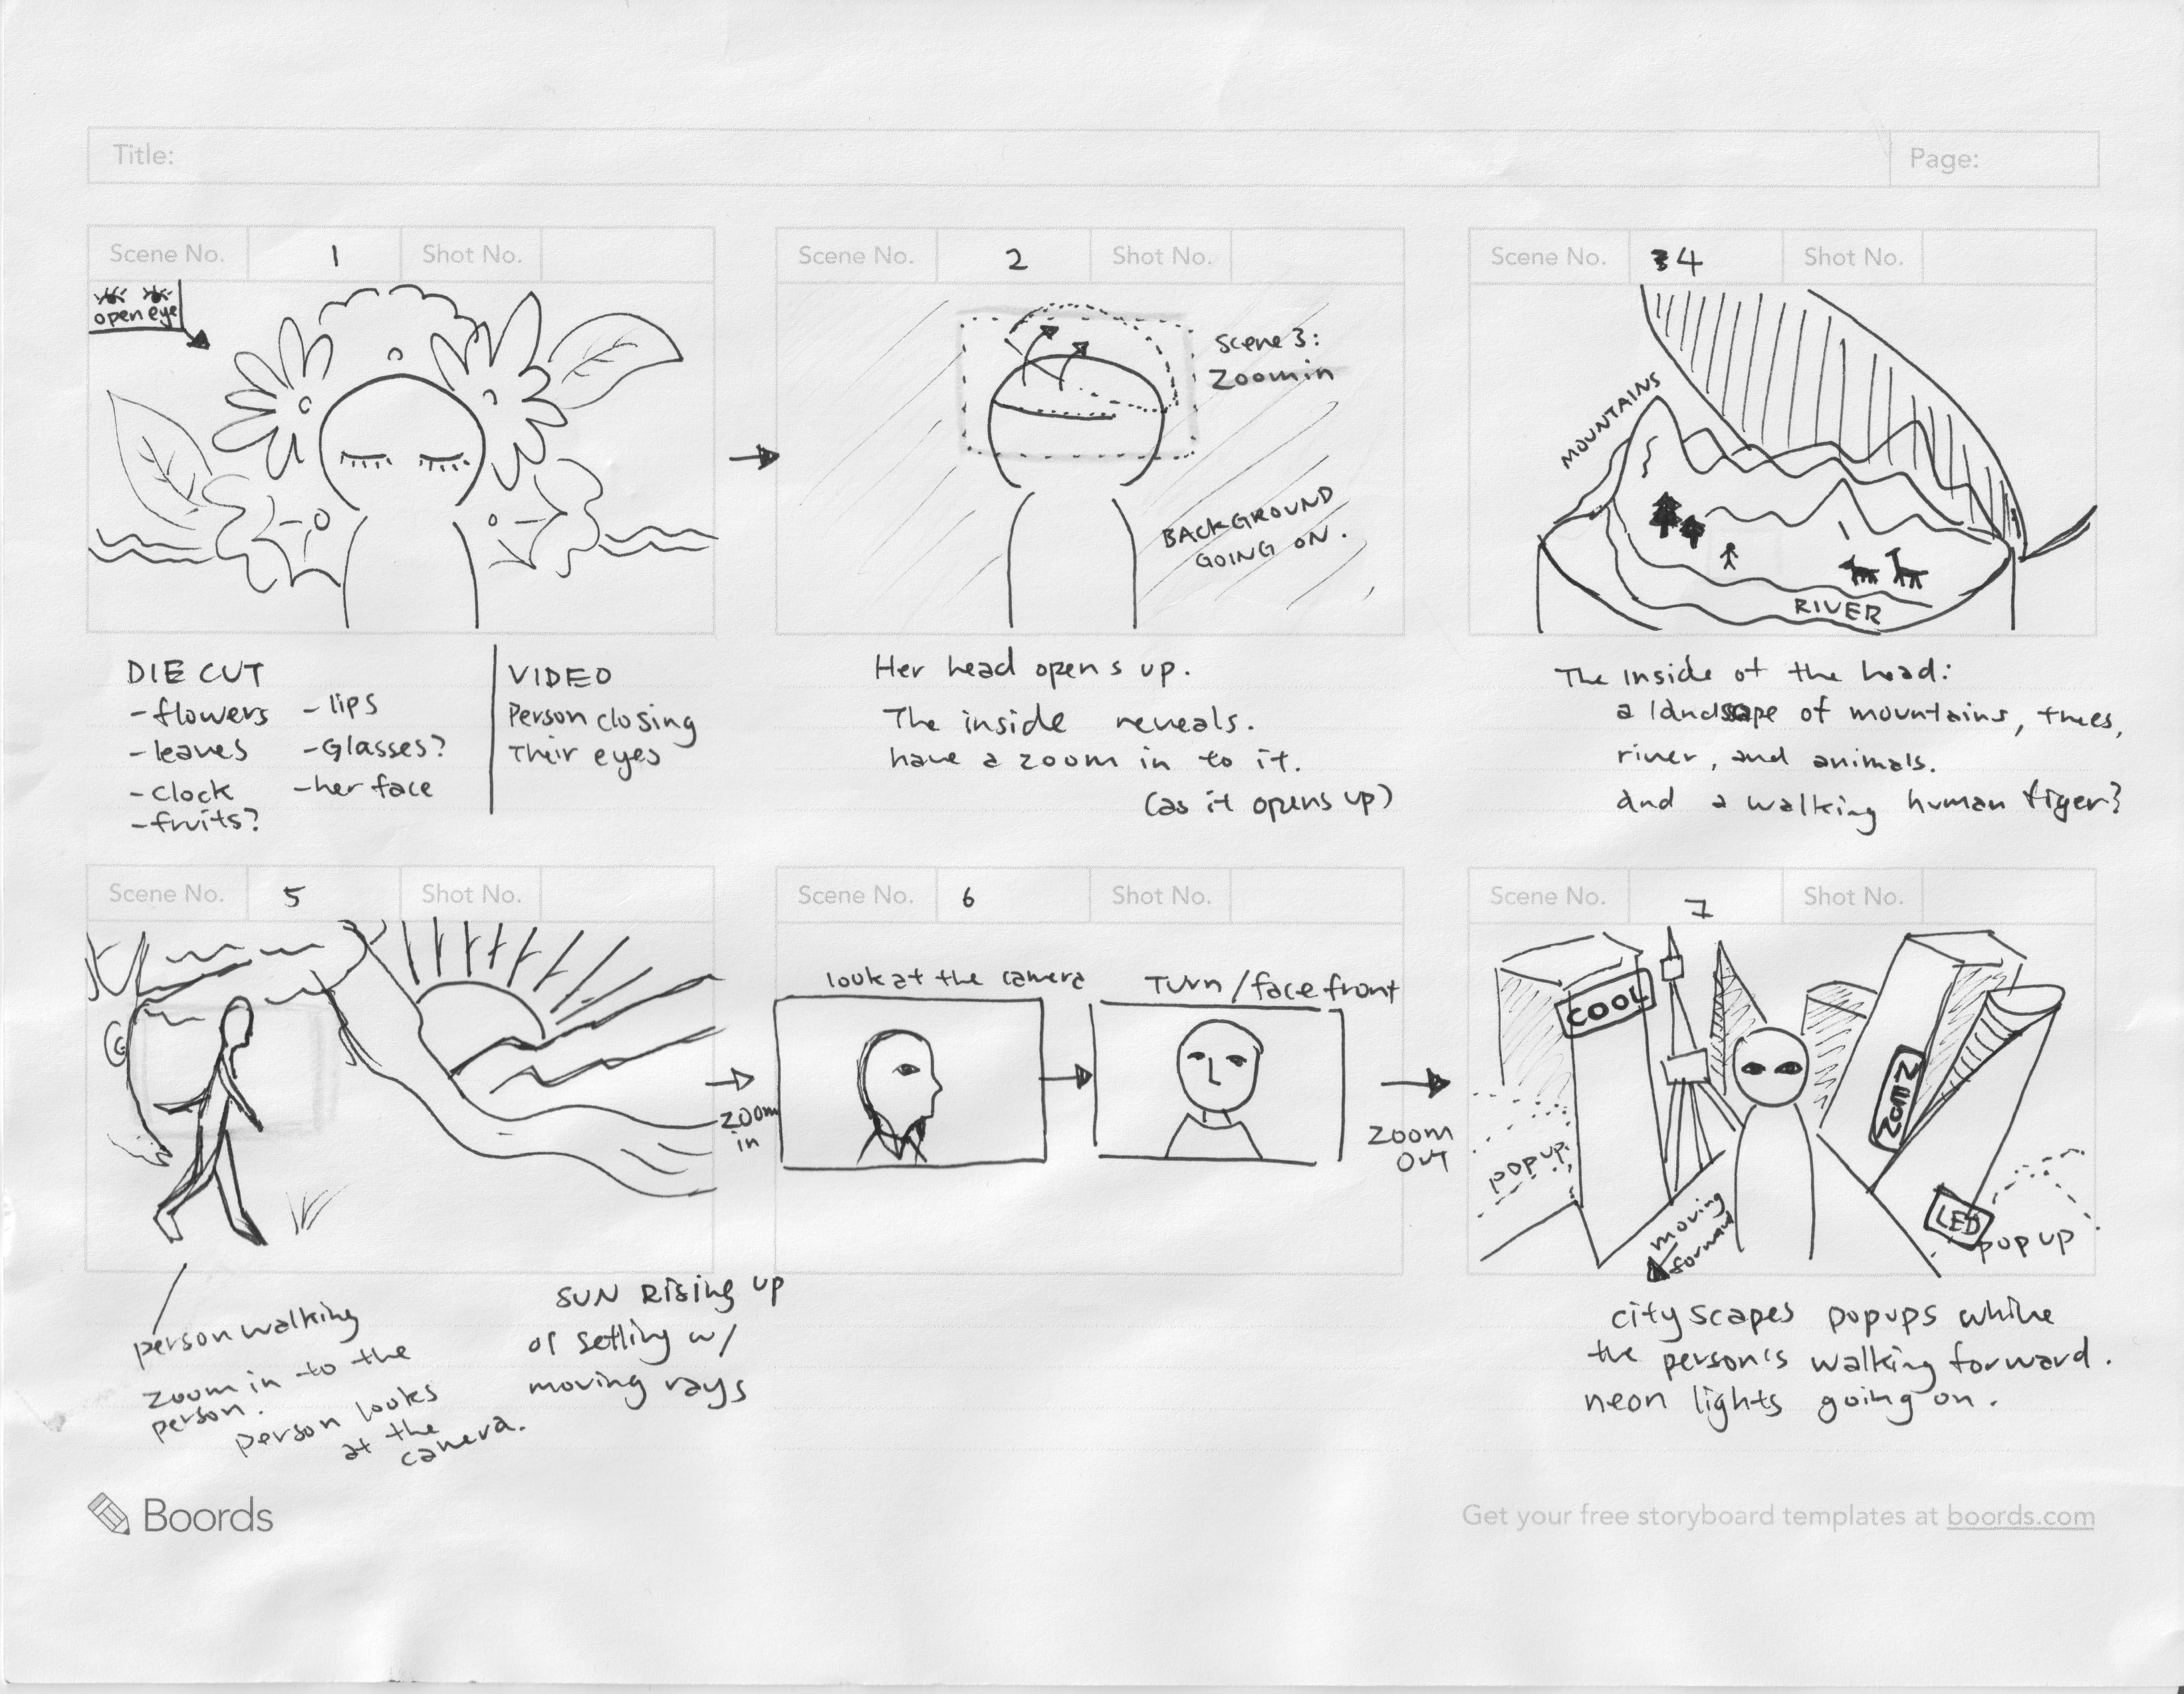 Title:
Page:
Scene No. 1 Shot No.
open eye
DIE CUT
- flowers
- leaves
- clock
- fruits?
- lips
- Glasses?
- her face
VIDEO
Person closing
Their eyes
Scene No. 2 Shot No.
Scene 3:
Zoom in
BACKGROUND
GOING ON.
Her head opens up.
The inside reveals.
have a zoom in to it.
(as it opens up)
Scene No. 4 Shot No.
MOUNTAINS
RIVER
The inside of the head:
a landscape of mountains, trees,
river, and animals.
and a walking human tiger?
Scene No. 5 Shot No.
person walking
zoom in to the
person.
person looks
at the
camera.
SUN Rising up
or setting w/
moving rays
zoom
in
Scene No. 6 Shot No.
look at the camera
Turn / face front
Zoom
Out
Scene No. 7 Shot No.
COOL
NEOZ
LED
popup
pop up
moving
forward
city scapes popups while
the person's walking forward.
neon lights going on.
Boords
Get your free storyboard templates at boords.com